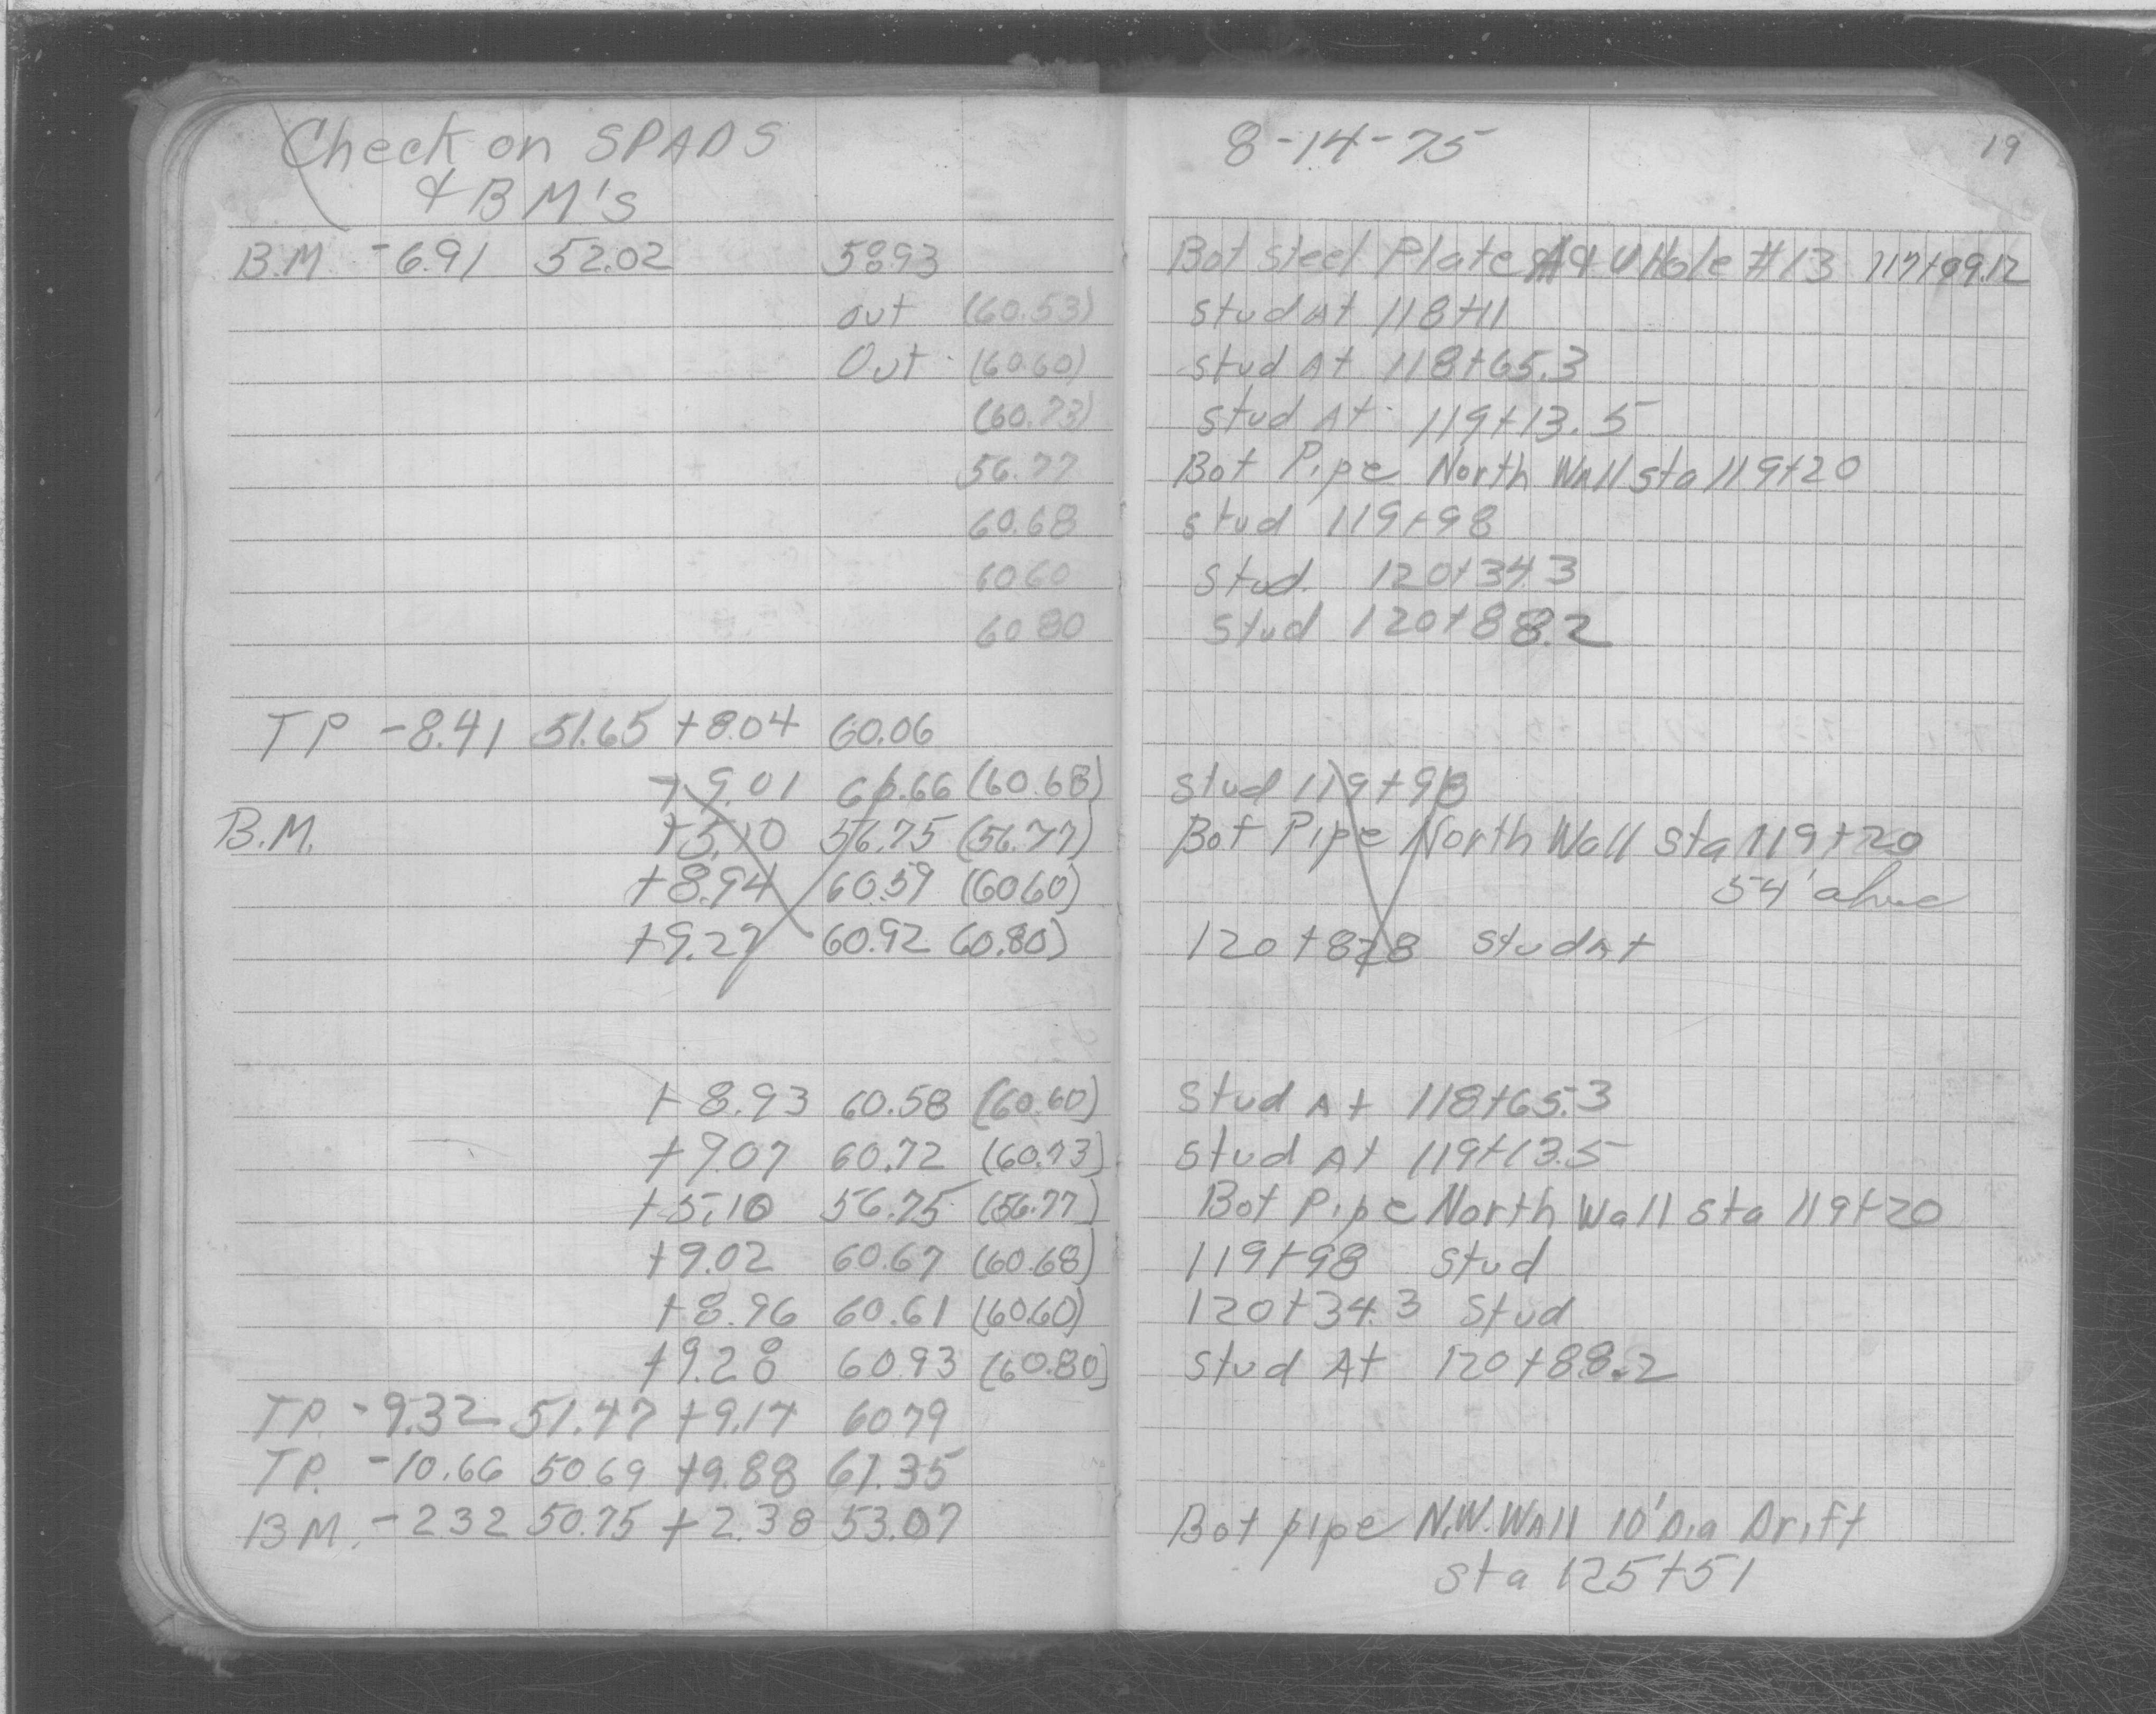 Check on SPADS
& BM's
8-14-75
19
B.M -6.91 52.02 58.93 Bot Steel Plate A & V Hole #13 117+09.12
out (60.53) Stud At 118+11
Out (60.60) Stud At 118+65.3
(60.73) Stud At 119+13.5
56.77 Bot Pipe North Wall Sta 119+20
60.68 Stud 119+98
60.60 Stud. 120+34.3
60.80 Stud 120+88.2
TP -8.41 51.65 +8.04 60.06
+9.01 60.66 (60.68) Stud 119+98
B.M. +5.10 56.75 (56.77) Bot Pipe North Wall Sta 119+20
+8.94 60.59 (60.60) 54'
+9.27 60.92 (60.80) 120+828 Stud At
+8.93 60.58 (60.60) Stud At 118+65.3
+9.07 60.72 (60.73) Stud At 119+13.5
+5.10 56.75 (56.77) Bot Pipe North Wall Sta 119+20
+9.02 60.67 (60.68) 119+98 Stud
+8.96 60.61 (60.60) 120+34.3 Stud
+9.28 60.93 (60.80) Stud At 120+88.2
TP. -9.32 51.47 +9.14 60.79
TP. -10.66 50.69 +9.88 61.35
BM. -2.32 50.75 +2.38 53.07 Bot pipe N.W. Wall 10' Dia Drift
Sta 125+51